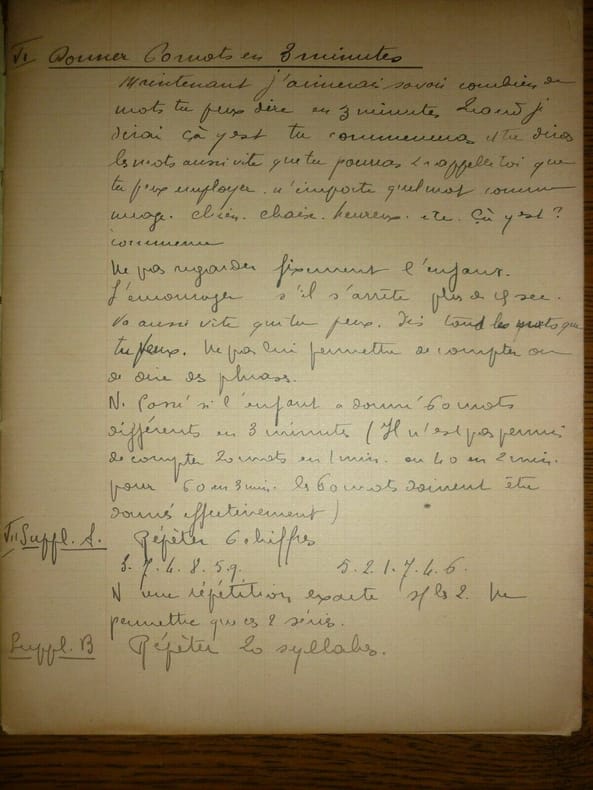 VI Donner 60 mots en 3 minutes
Maintenant j'aimerais savoir combien de
mots tu peux dire en 3 minutes Quand je
dirai çà y est tu commenceras et tu diras
les mots aussi vite que tu pourras Rappelle toi que
tu peux employer n'importe quel mot comme
nuage. chien. chaise. heureux. etc. Çà y est?
commence
Ne pas regarder fixement l'enfant.
L'encourager s'il s'arrête plus de 15 sec.
Va aussi vite que tu peux. Dis tous les mots que
tu peux. Ne pas lui permettre de compter ou
de dire des phrases.
N. Passé si l'enfant a donné 60 mots
différents en 3 minutes (Il n'est pas permis
de compter 20 mots en 1 min. ou 40 en 2 min.
pour 60 en 3 min. les 60 mots doivent être
donnés effectivement)
Suppl. A. Répéter 6 chiffres
3. 7. 4. 8. 5. 9. 5. 2. 1. 7. 4. 6.
N une répétition exacte s/ les 2. Ne
permettre que ces 2 séries.
Suppl. B Répéter 20 syllabes.